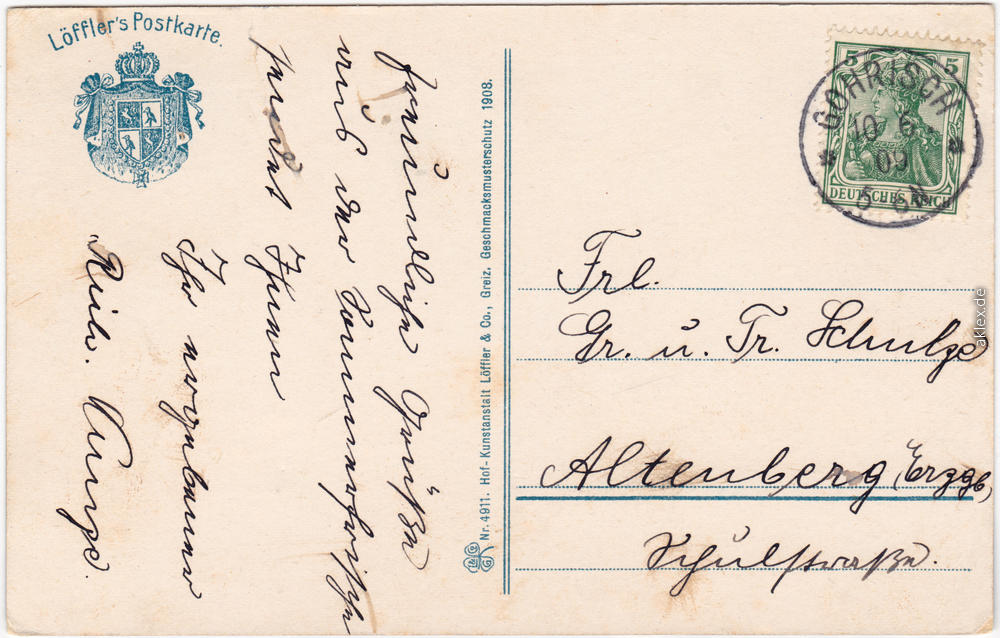 Löffler's Postkarte.
freundliche Grüße
aus der Sommerfrische
sendet Ihnen
Ihr ergebener
Rich. Kunze.
Nr. 4911. Hof-Kunstanstalt Löffler & Co., Greiz. Geschmacksmusterschutz 1908.
5 5
DEUTSCHES REICH
GOHRISCH
10 6
09
5-6N
Frl.
Gr. u. Tr. Schulze
Altenberg, Erzgb,
Schulstraße.
aklex.de